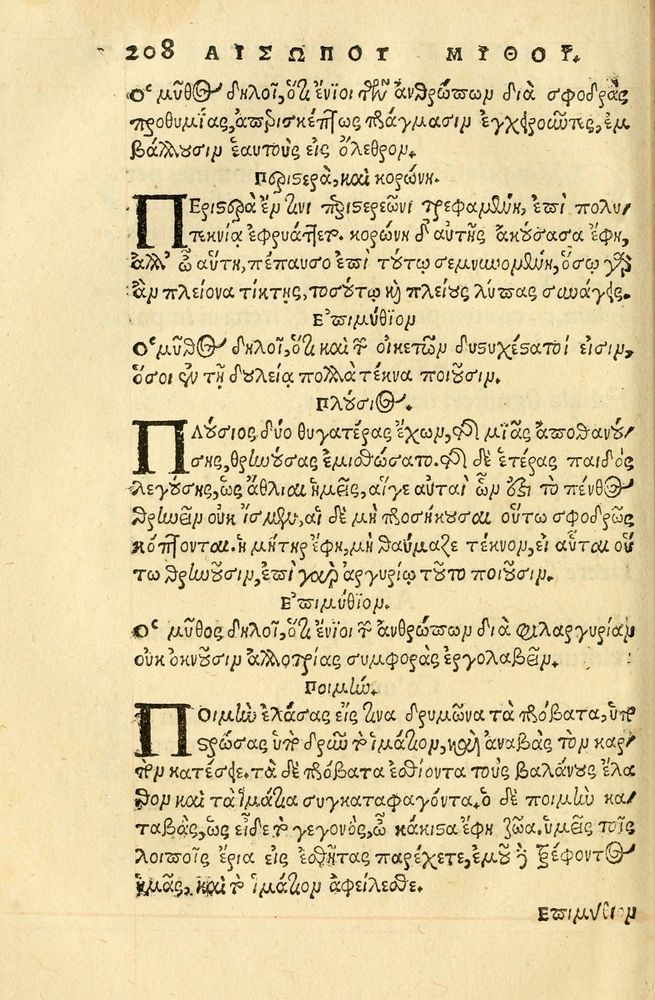 208 ΑΙΣΩΠΟΥ ΜΥΘΟΙ.
Ὁ μῦθος δηλοῖ, ὅτι ἔνιοι τῶν ἀνθρώπων διὰ σφοδρὰς
προθυμίας, ἀπερισκέπτως πράγμασιν ἐγχειροῦντες, ἐμ
βάλλουσιν ἑαυτοὺς εἰς ὄλεθρον.
Περιστερὰ, καὶ κορώνη.
ΠΕριστερὰ ἔν τινι περιστερεῶνι τρεφομένη, ἐπὶ πολυ/
τεκνία ἐφρυάττετο. κορώνη δ' αὐτῆς ἀκούσασα ἔφη,
ἀλλ' ὦ αὕτη, πέπαυσο ἐπὶ τούτῳ σεμνυνομένη, ὅσῳ γὰρ
ἂν πλείονα τίκτης, τοσούτῳ καὶ πλείους λύπας συνάγεις.
Ἐπιμύθιον
Ὁ μῦθος δηλοῖ, ὅτι καὶ τῶν οἰκετῶν δυστυχέστατοί εἰσιν,
ὅσοι ἐν τῇ δουλείᾳ πολλὰ τέκνα ποιοῦσιν.
Πλούσιος.
ΠΛούσιος δύο θυγατέρας ἔχων, τῆς μιᾶς ἀποθανού/
σης, θρηνούσας ἐμισθώσατο. τῆς δὲ ἑτέρας παιδὸς
λεγούσης, ὡς ἄθλιαι ἡμεῖς, αἵγε αὐταὶ ὧν ἐστι τὸ πένθος
θρηνεῖν οὐκ ἴσμεν, αἱ δὲ μὴ προσήκουσαι οὕτω σφοδρῶς
κόπτονται. ἡ μήτηρ ἔφη, μὴ θαύμαζε τέκνον, εἰ αὗται οὕ
τω θρηνοῦσιν, ἐπὶ γὰρ ἀργυρίῳ τοῦτο ποιοῦσιν.
Ἐπιμύθιον.
Ὁ μῦθος δηλοῖ, ὅτι ἔνιοι τῶν ἀνθρώπων διὰ φιλαργυρίαν
οὐκ ὀκνοῦσιν ἀλλοτρίας συμφορὰς ἐργολαβεῖν.
Ποιμήν.
ΠΟιμὴν ἐλάσας εἴς τινα δρυμῶνα τὰ πρόβατα, ὑπο
στρώσας ὑπὸ δρῦν τὸ ἱμάτιον, καὶ ἀναβὰς τὸν καρ/
πὸν κατέσειε. τὰ δὲ πρόβατα ἐσθίοντα τοὺς βαλάνους ἔλα
θον καὶ τὰ ἱμάτια συγκαταφαγόντα. ὁ δὲ ποιμὴν κα/
ταβὰς, ὡς εἶδε τὸ γεγονὸς, ὦ κάκιστα ἔφη ζῶα. ὑμεῖς τοῖς
λοιποῖς ἔρια εἰς ἐσθῆτας παρέχετε, ἐμοῦ δὲ τρέφοντος
ὑμᾶς, καὶ τὸ ἱμάτιον ἀφείλεσθε.
Ἐπιμύθιον